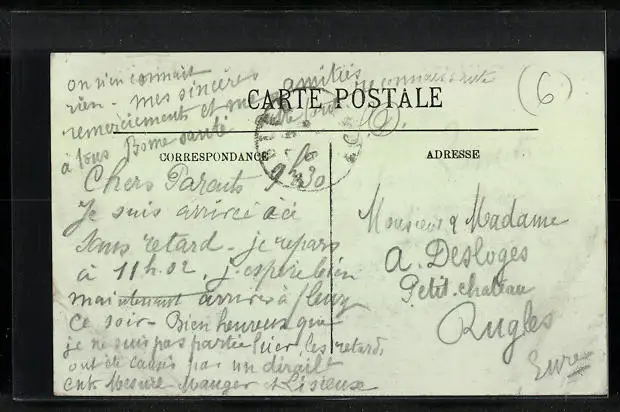 CARTE POSTALE
(6)
CORRESPONDANCE
ADRESSE
Chers Parents 9h30
Je suis arrivée ici
sans retard - je repars
à 11h.02. j'espère bien
maintenant arriver à
ce soir - Bien heureux que
je ne suis pas partie hier, les retards
ont été causés par un déraillt
entre Mesnil-Mauger et Lisieux
on n'en connait
rien - mes sincères amitiés
remerciements et reconnaissante
à tous Bonne santé
Monsieur & Madame
A. Desloges
Petit-chateau
Rugles
Eure